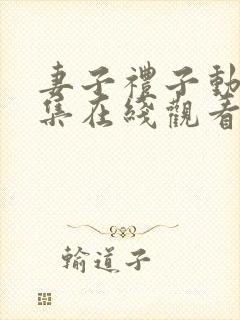 妻子禮子動
集在綫觀看
輸道子